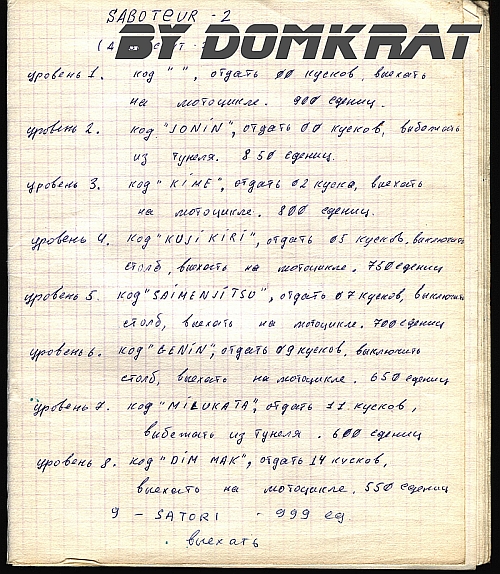 SABOTEUR - 2
BY DOMKRAT
уровень 1. код " ", отдать 00 кусков, выехать
на мотоцикле. 900 едениц.
уровень 2. код "JONIN", отдать 00 кусков, выбежать
из тунеля. 850 едениц.
уровень 3. код "KIME", отдать 02 куска, выехать
на мотоцикле. 800 едениц.
уровень 4. код "KUJI KIRI", отдать 05 кусков, выключить
столб, выехать на мотоцикле. 750 едениц
уровень 5. код "SAIMENJITSU", отдать 07 кусков, выключить
столб, выехать на мотоцикле. 700 едениц
уровень 6. код "GENIN", отдать 09 кусков, выключить
столб, выехать на мотоцикле. 650 едениц
уровень 7. код "MILUKATA", отдать 11 кусков,
выбежать из тунеля. 600 едениц
уровень 8. код "DIM MAK", отдать 14 кусков,
выехать на мотоцикле. 550 едениц
9 - SATORI - 999 ед
выехать